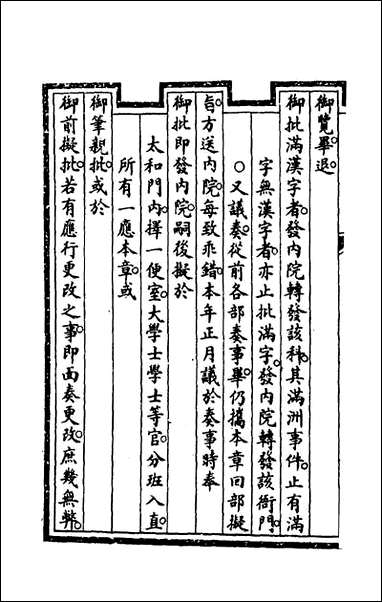 御覽畢退
御批滿漢字者發內院轉發該科其滿洲事件止有滿
字無漢字者亦止批滿字發內院轉發該衙門
○又議奏從前各部奏事畢仍攜本章回部擬
旨方送內院每致乖錯本年正月議於奏事時奉
御批即發內院嗣後擬於
太和門內擇一便室大學士學士等官分班入直
所有一應本章或
御筆親批或於
御前擬批若有應行更改之事即面奏更改庶幾無弊